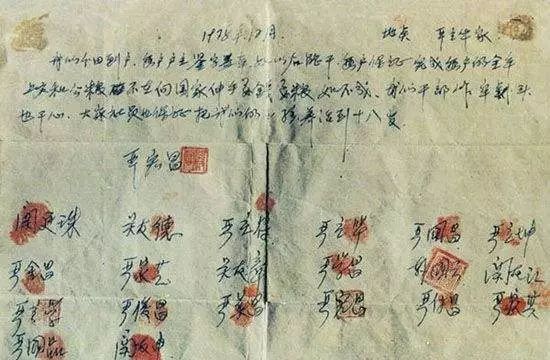 1978年12月 地点 严立华家
我们分田到户，每户户主签字盖章，如以后能干，每户保证完成每户的全年
上交和公粮，不在向国家伸手要钱要粮，如不成，我们干部作牢刹头
也干心，大家社员也保证把我们的小孩养活到十八岁
严宏昌
关廷珠 关友德 严立富 严立华 严国昌 严立坤
严金昌 严家芝 关友章 严学昌 韩国云 关友江
严立学 严俊昌 严美昌 严宏昌 严付昌 严家其
严国品 关友申